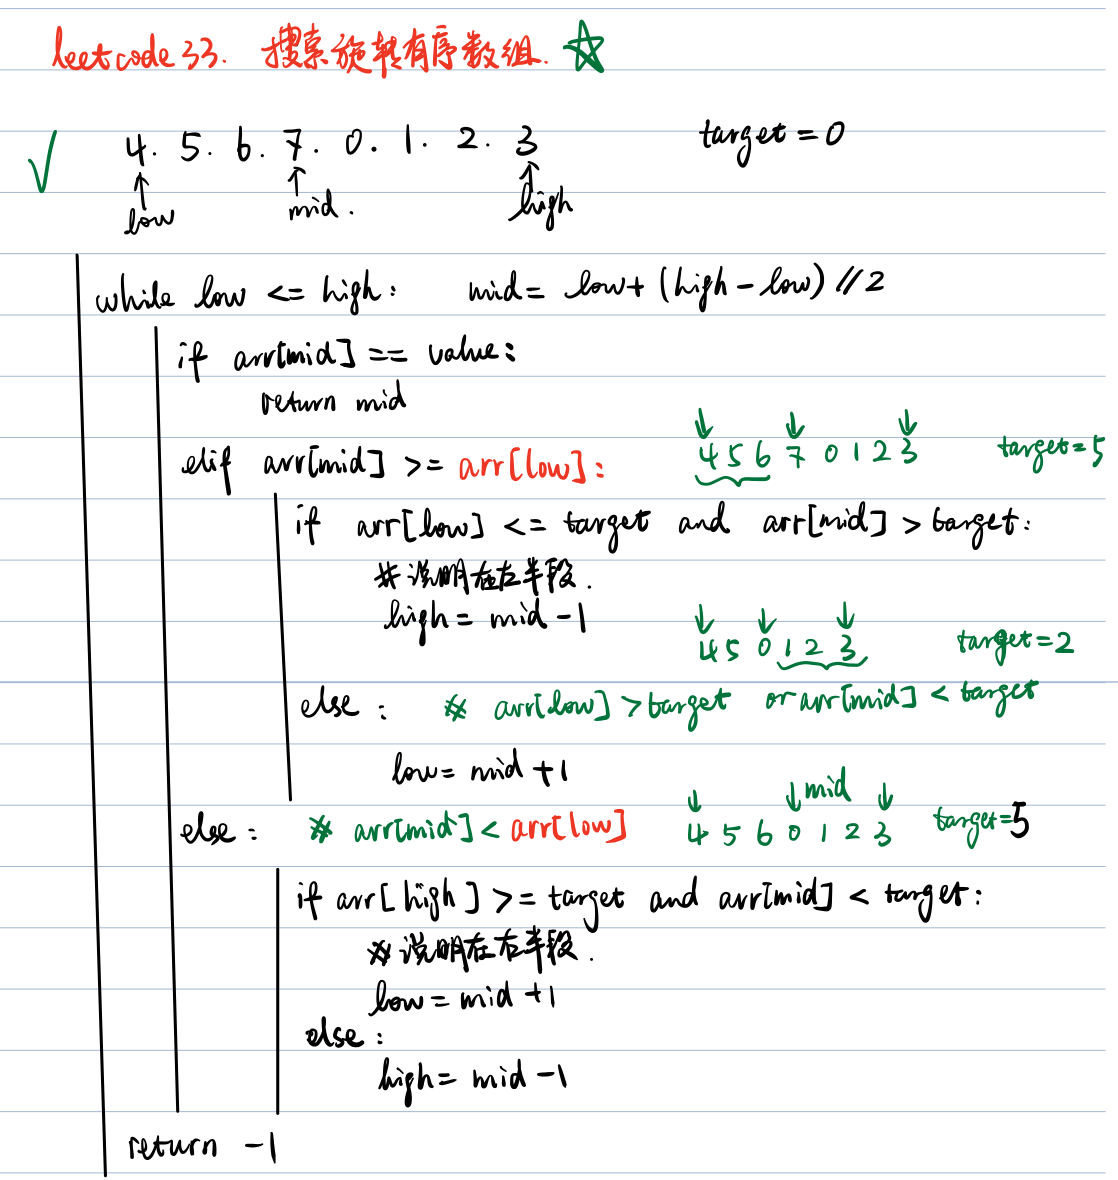 leetcode 33. 搜索旋转有序数组. ☆
✓ 4. 5. 6. 7. 0. 1. 2. 3 target = 0
↑ ↑ ↑
low mid. high
while low <= high: mid = low + (high - low) // 2
if arr[mid] == value:
return mid
↓ ↓ ↓
elif arr[mid] >= arr[low]: 4 5 6 7 0 1 2 3 target = 5
if arr[low] <= target and arr[mid] > target:
# 说明在左半段.
high = mid - 1
↓ ↓ ↓
4 5 0 1 2 3 target = 2
else: # arr[low] > target or arr[mid] < target
low = mid + 1
↓ ↓ mid ↓
else: # arr[mid] < arr[low] 4 5 6 0 1 2 3 target = 5
if arr[high] >= target and arr[mid] < target:
# 说明在右半段.
low = mid + 1
else:
high = mid - 1
return -1